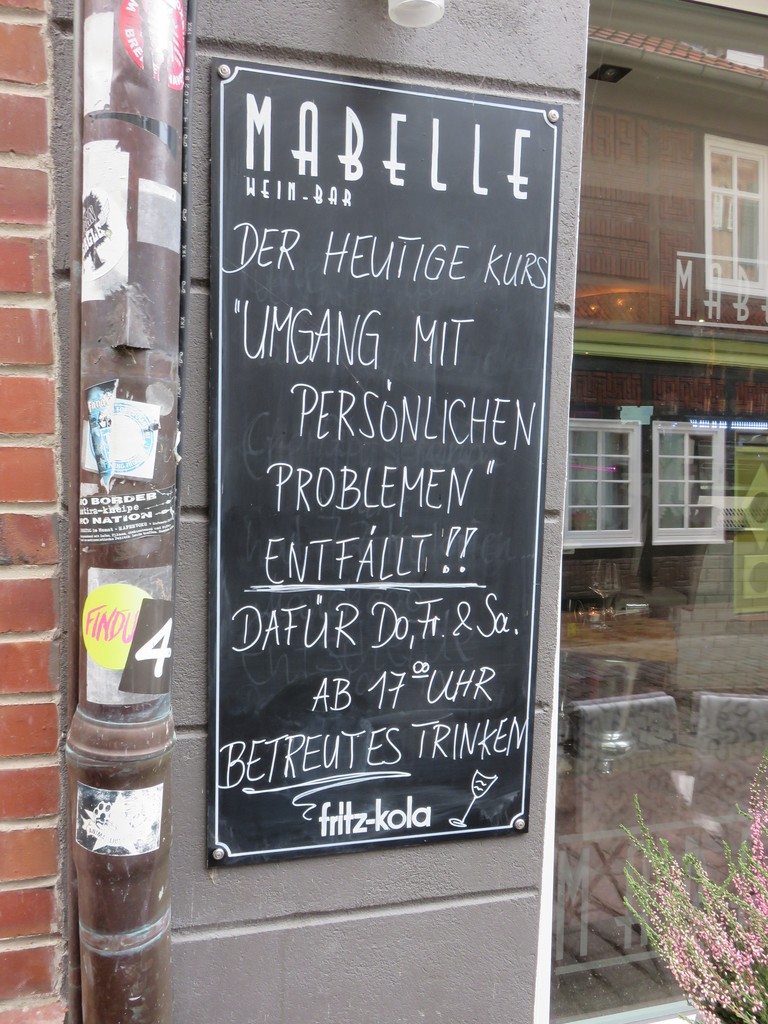 MABELLE
WEIN-BAR
DER HEUTIGE KURS
"UMGANG MIT
PERSÖNLICHEN
PROBLEMEN"
ENTFÄLLT!!
DAFÜR DO, FR. & SA.
AB 17°° UHR
BETREUTES TRINKEN
fritz-kola
NO BORDER
NO NATION
FINDU
4
MAB